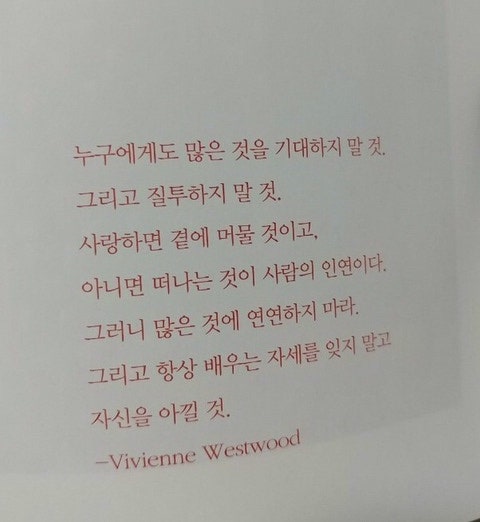 누구에게도 많은 것을 기대하지 말 것.
그리고 질투하지 말 것.
사랑하면 곁에 머물 것이고,
아니면 떠나는 것이 사람의 인연이다.
그러니 많은 것에 연연하지 마라.
그리고 항상 배우는 자세를 잊지 말고
자신을 아낄 것.
–Vivienne Westwood